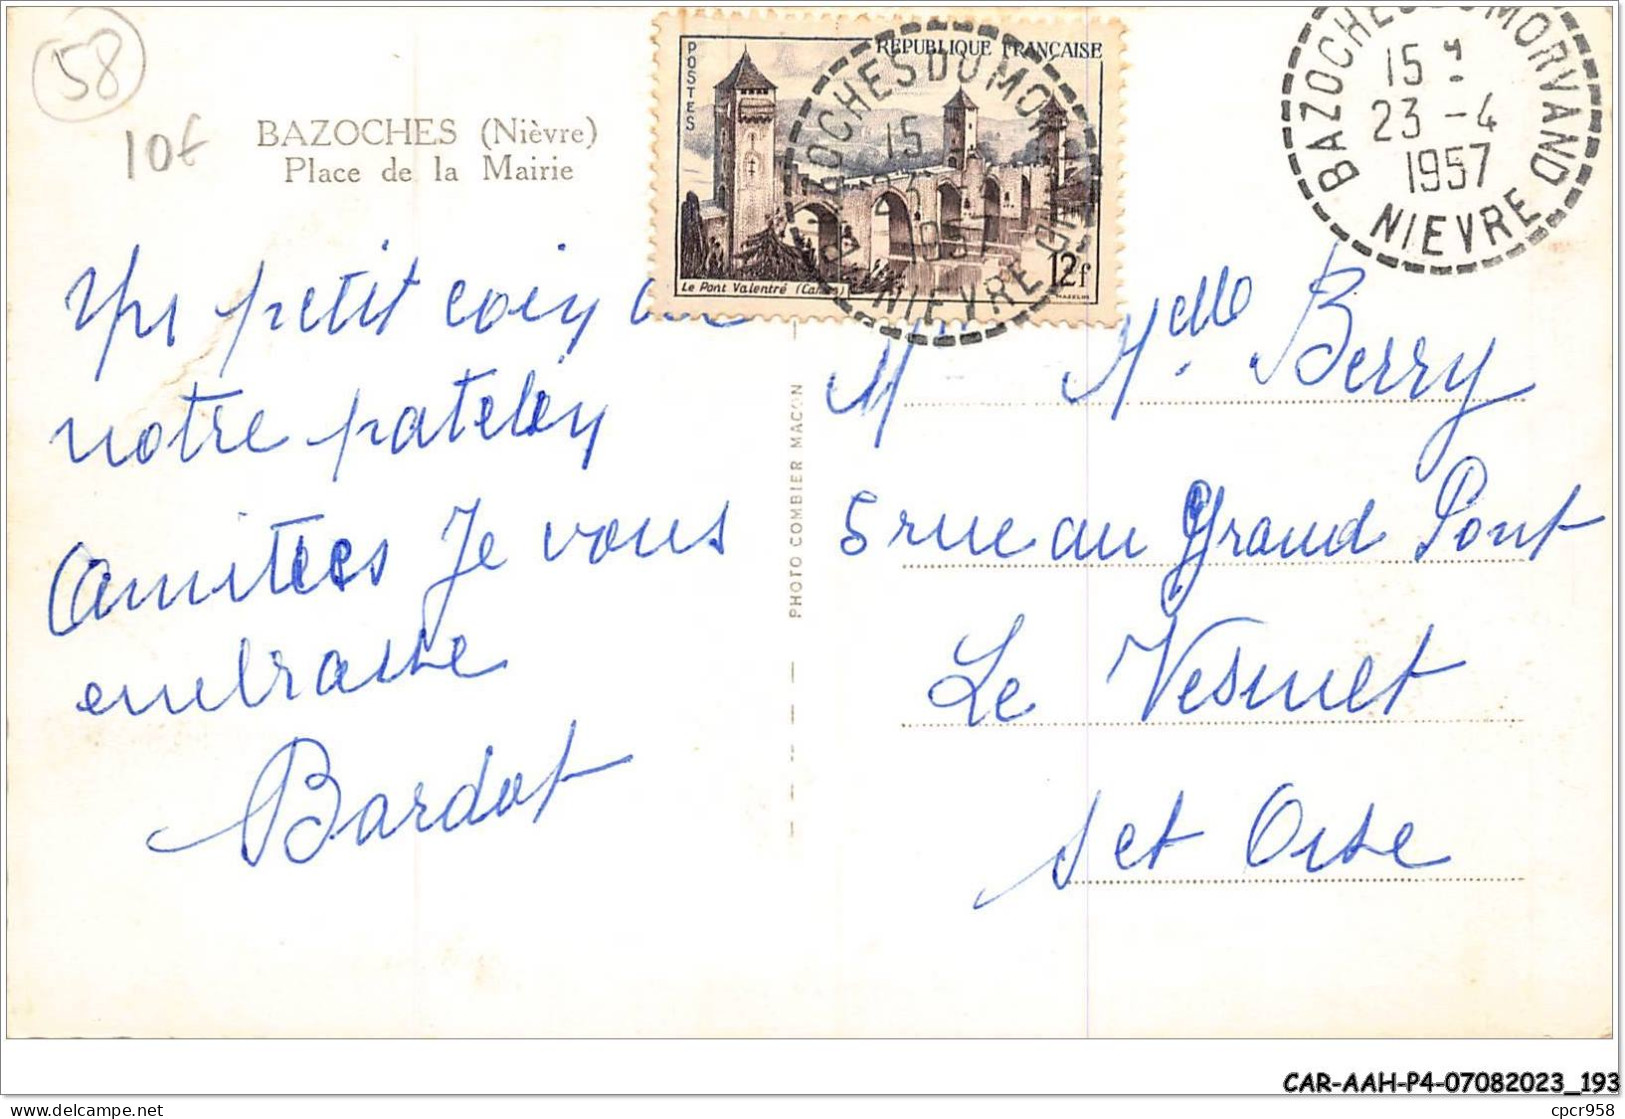 58
10€
BAZOCHES (Nièvre)
Place de la Mairie
petit coin
notre patelin
Amitiés Je vous
embrasse
Bardot
PHOTO COMBIER MACON
POSTES
REPUBLIQUE FRANÇAISE
Le Pont Valentré (Cahors)
12f
BAZOCHES DU MORVAND
15
NIEVRE
BAZOCHES DU MORVAND
15
23 -4
1957
NIEVRE
Melle Berry
5 rue du Grand Pont
Le Vesinet
S et Oise
CAR-AAH-P4-07082023_193
cpcr958